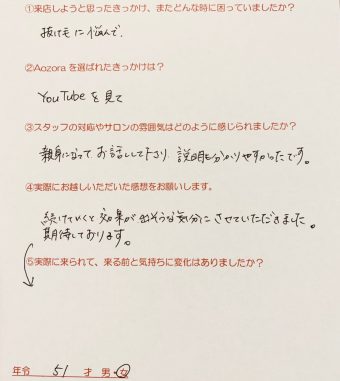 ①来店しようと思ったきっかけ、またどんな時に困っていましたか？
抜け毛に悩んで.
②Aozoraを選ばれたきっかけは？
YouTubeを見て
③スタッフの対応やサロンの雰囲気はどのように感じられましたか？
親身になってお話しして下さり、説明も分かりやすかったです。
④実際にお越しいただいた感想をお願いします。
続けていくと効果が出そうな気分にさせていただきました。
期待しております。
⑤実際に来られて、来る前と気持ちに変化はありましたか？
年令 51 才 男・女